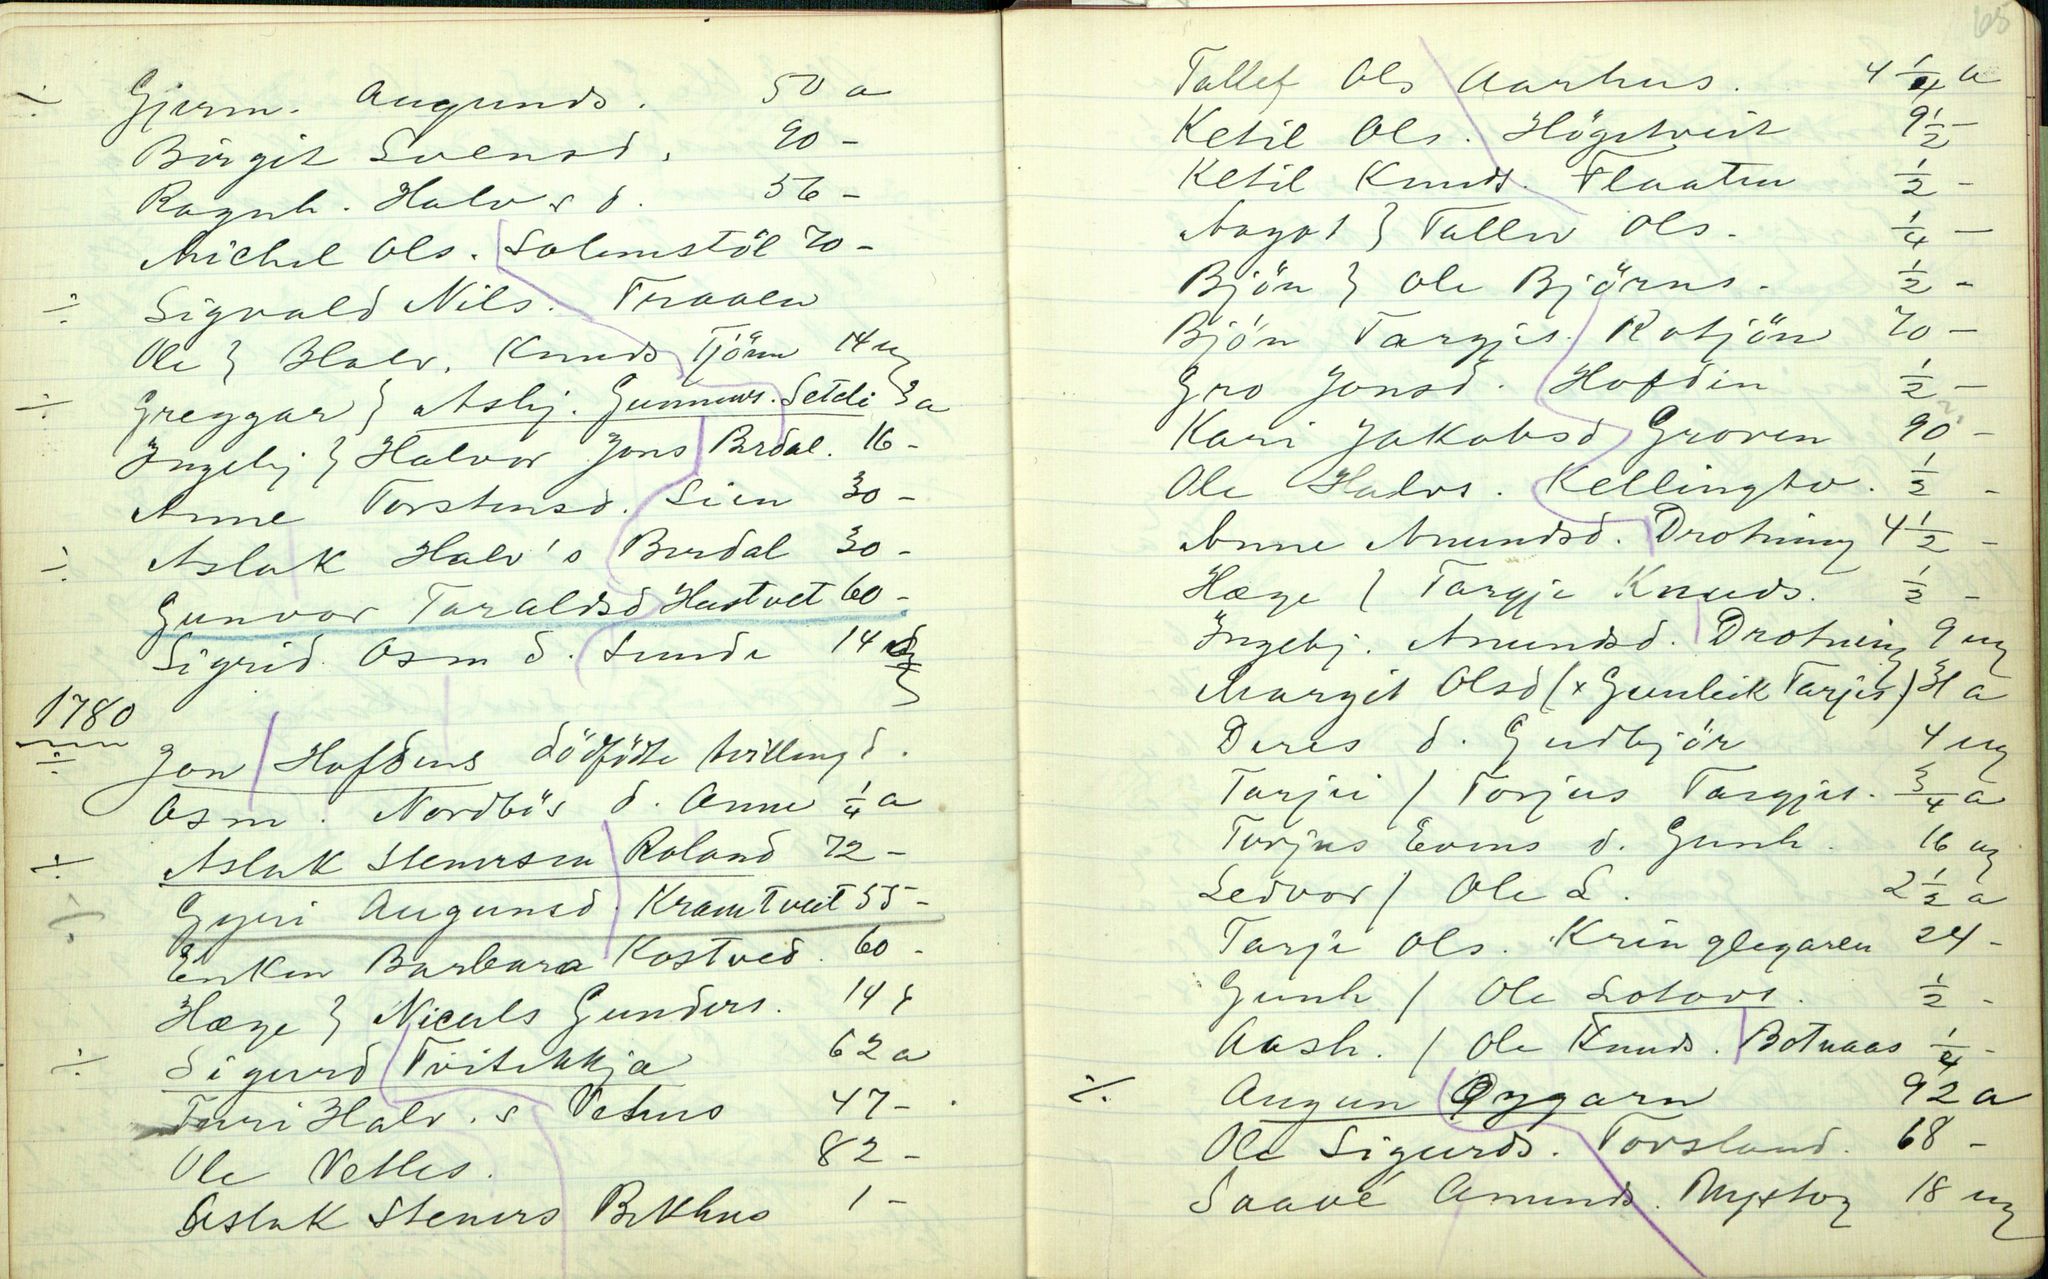 ÷ Gjerm. Augunds. 50 a
Birgit Svensd. 90 -
Ragnh. Halv s d. 56 -
Michel Ols. Solemstöl 70 -
÷ Sigvald Nils. Traaen
Ole } Halv. Knuds Tjönn 14 ug
÷ Greggar } Asbj. Gunnuvs. Setdi 3 a
Ingebj } Halvor Jons Brdal. 16 -
Anne Torstensd. Lien 30 -
÷ Aslak Halv's Burdal 30 -
Gunvor Taraldsd Hustvet 60 -
Sigrid Osm d. Lunde 14 ug
1780
÷ Jon Hofdens dödfödte tvilling d.
Osm. Nordbös d. Anne 1/4 a
÷ Aslak Stenersen Roland 72 -
÷ Gyri Augunsd. Kramtveit 55 -
Enken Barbara Kostved. 60 -
Hæge } Niculs Gunders. 14
÷ Sigurd Tvitekkja 62 a
Turi Halv. s Vehus 47 -
Ole Vetles. 82 -
Aslak Steners Bekhus 1 -
65
Tallef Ols Aarhus. 4 1/4 a
Ketil Ols. Högetveit 9 1/2 -
Ketil Knuds. Flaaten 1/2 -
Aagot } Tallev Ols. 1/4 -
Bjön } Ole Björns. 1/2 -
Bjön Targjes. Kotjön 70 -
Gro Jonsd. Hofdin 1/2 -
Kari Jakobsd Groven 90 -
Ole Halvs. Kellingtv. 1/2 -
Anne Amundsd. Drotning 4 1/2 -
Hæge / Targje Knuds. 1/2 -
Ingebj. Amundsd. Drotning 9 ug
Margit Olsd (x Gunleik Tarjes) 31 a
Deres d. Gudbjör 4 ug
Tarjei / Torjus Targjes. 3/4 a
Torjus Evens d. Gunh. 16 ug
Ledvor / Ole L. 2 1/2 a
Tarje Ols. Kringlegaren 24 -
Gunh / Ole Lotovs. 1/2 -
Aash. / Ole Knuds. Botnaas 1/4 -
÷ Augun Öygarn 92 a
Ole Sigurds. Torsland. 68 -
Saavé Amunds. Nystog 18 ug